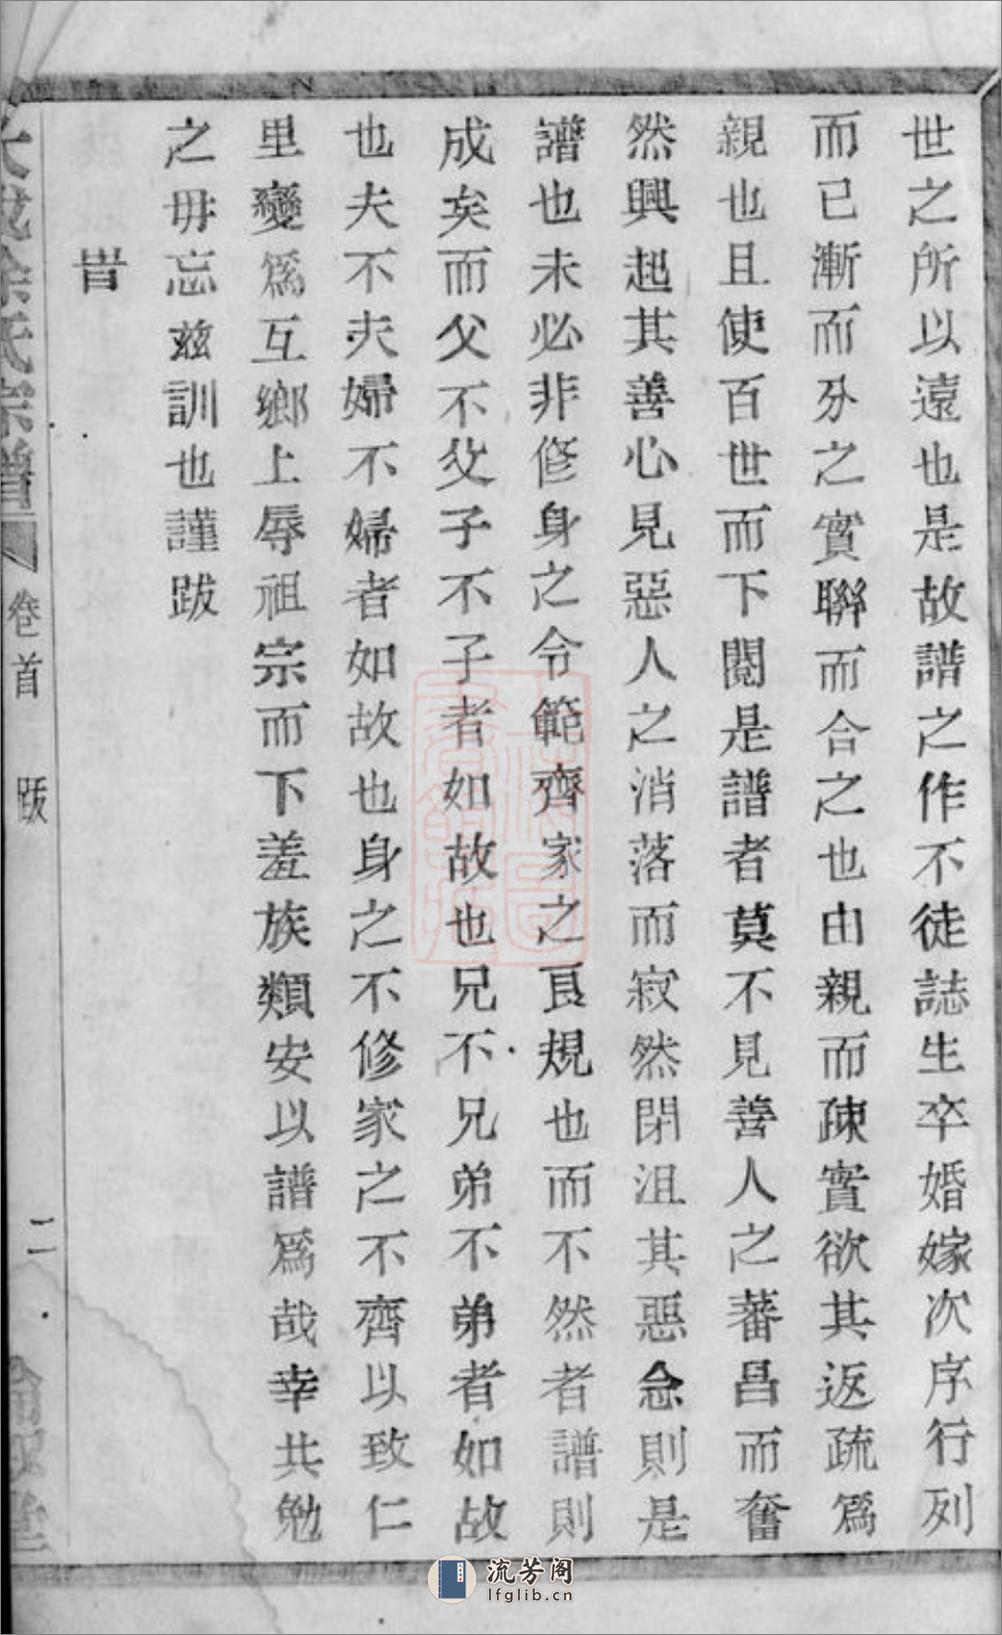 世之所以遠也是故譜之作不徒誌生卒婚嫁次序行列
而已漸而分之實聯而合之也由親而疎實欲其返疏爲
親也且使百世而下閱是譜者莫不見善人之蕃昌而奮
然興起其善心見惡人之消落而寂然閉沮其惡念則是
譜也未必非修身之令範齊家之良規也而不然者譜則
成矣而父不父子不子者如故也兄不兄弟不弟者如故
也夫不夫婦不婦者如故也身之不修家之不齊以致仁
里變爲互鄉上辱祖宗而下羞族類安以譜爲哉幸共勉
之毋忘茲訓也謹跋
旹
氏宗譜
卷首
跋
二
堂
流芳阁
lfglib.cn